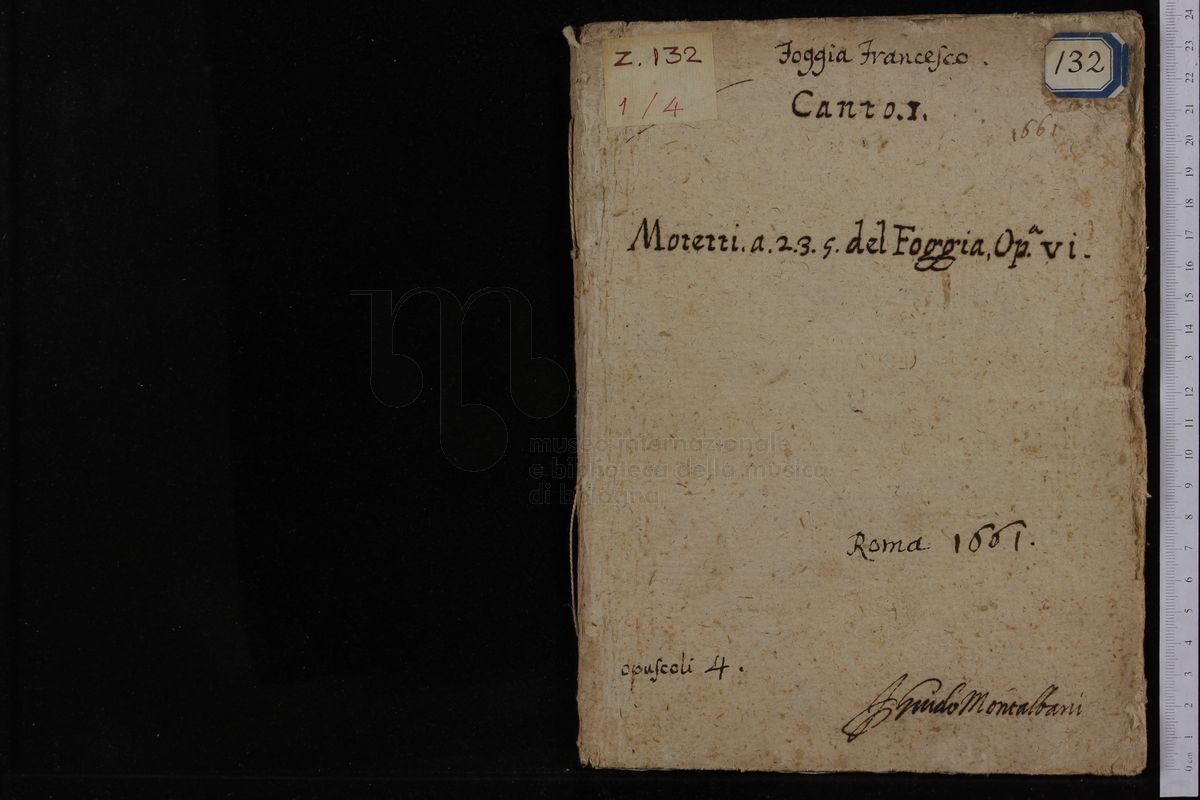 Z. 132
1/4
Foggia Franceſco.
132
Canto. 1.
1661
Motetti. a. 2. 3. 5. del Foggia, Op.ª vi.
museo internazionale
e biblioteca della musica
di bologna
Roma 1661.
opuſcoli 4.
Guido Montalbani
24
23
22
21
20
19
18
17
16
15
14
3
12
11
10
9
8
7
6
5
4
3
2
1
0 cm